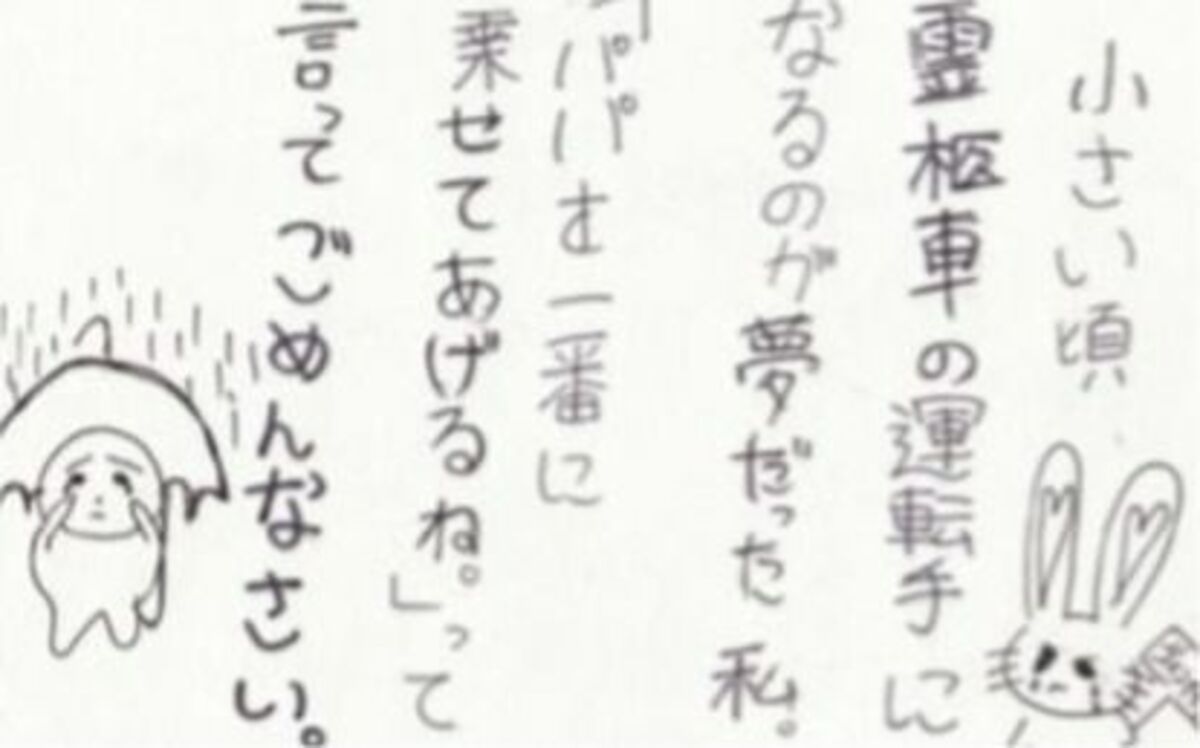 小さい頃
霊柩車の運転手に
なるのが夢だった私。
「パパを一番に
乗せてあげるね。」って
言ってごめんなさい。